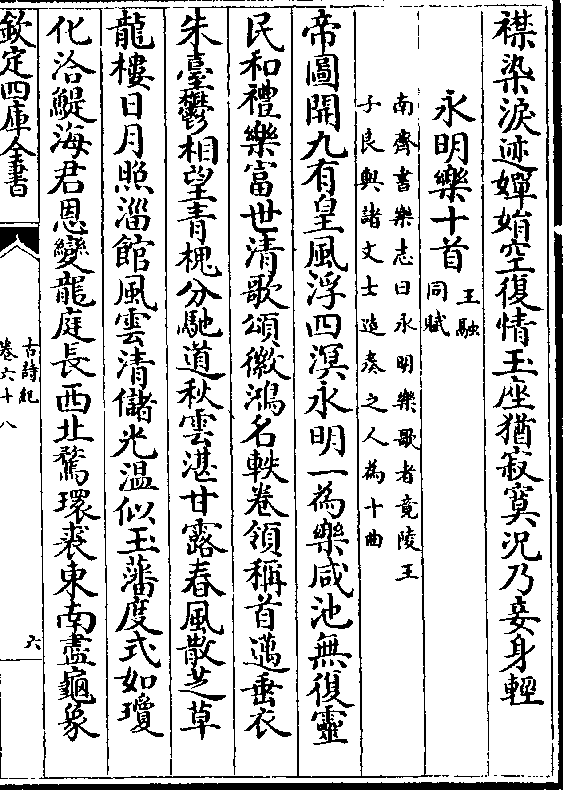 襟染淚迹嬋娟空復情玉座猶寂寞況乃妾身輕
永明樂十首王融同賦
南齊書樂志曰永明樂歌者竟陵王
子良與諸文士造奏之人為十曲
帝圖開九有皇風浮四溟永明一為樂咸池無復靈
民和禮樂富世清歌頌徽鴻名軼卷領稱首邁垂衣
朱臺鬱相望青槐分馳道秋雲湛甘露春風散芝草
龍樓日月照淄館風雲清儲光温似玉藩度式如瓊
化洽鯷海君恩變龍庭長西北騖環裘東南盡龜象
欽定四庫全書
古詩紀
卷六十八
六